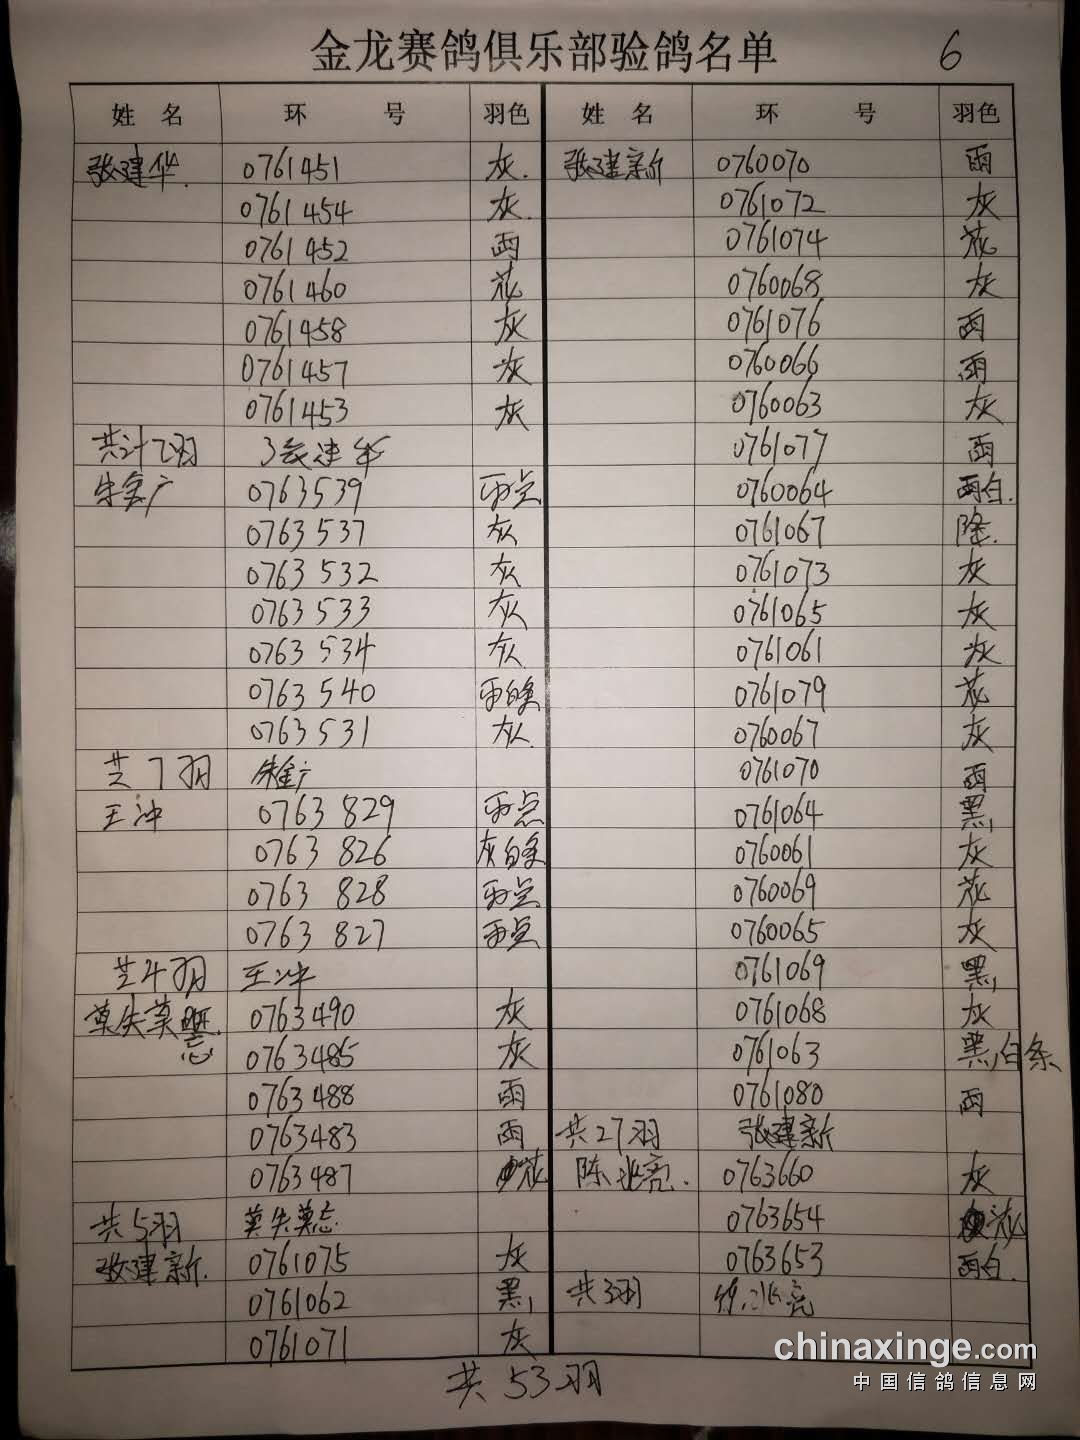 金龙赛鸽俱乐部验鸽名单 6
姓 名 环 号 羽色 姓 名 环 号 羽色
张建华. 0761451 灰.
0761454 灰.
0761452 雨
0761460 花
0761458 灰
0761457 灰
0761453 灰
共计7羽 张建华
朱金广 0763539 雨点
0763537 灰
0763532 灰
0763533 灰
0763534 灰
0763540 雨白条
0763531 灰
共7羽 朱金广
王冲 0763829 雨点
0763826 灰白条
0763828 雨点
0763827 雨点
共4羽 王冲
莫失莫忘 0763490 灰
0763485 灰
0763488 雨
0763483 雨
0763487 花
共5羽 莫失莫忘
张建新. 0761075 灰
0761062 黑
0761071 灰
张建新 0760070 雨
0761072 灰
0761074 花
0760068 灰
0761076 雨
0760066 雨
0760063 灰
0761077 雨
0760064 雨白.
0761067 降.
0761073 灰
0761065 灰
0761061 灰
0761079 花
0760067 灰
0761070 雨
0761064 黑
0760061 灰
0760069 花
0760065 灰
0761069 黑
0761068 灰
0761063 黑白条
0761080 雨
共27羽 张建新
陈兆亮. 0763660 灰
0763654 花
0763653 雨白.
共3羽 陈兆亮
共53羽
chinaxinge.com
中国信鸽信息网